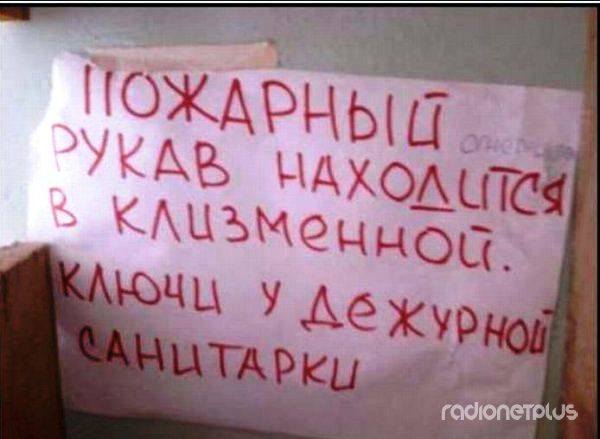 ПОЖАРНЫЙ
РУКАВ НАХОДИТСЯ
В КЛИЗМЕННОЙ.
КЛЮЧИ У ДЕЖУРНОЙ
САНИТАРКИ
radionetplus